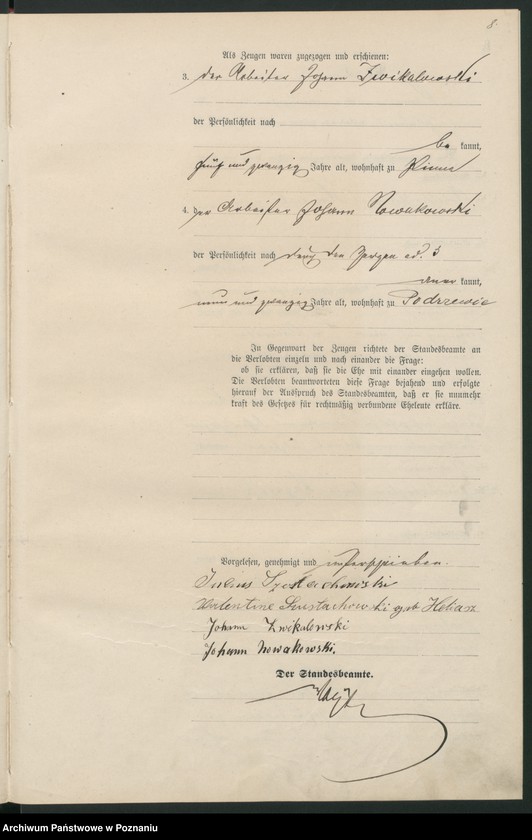 8.
Als Zeugen waren zugezogen und erschienen:
3. der Arbeiter Johann Zwikalowski
der Persönlichkeit nach
be kannt,
fünf und zwanzig Jahre alt, wohnhaft zu Pinne
4. der Arbeiter Johann Nowakowski
der Persönlichkeit nach durch den Zeugen ad. 3
aner kannt,
neun und zwanzig Jahre alt, wohnhaft zu Podrzewie
In Gegenwart der Zeugen richtete der Standesbeamte an
die Verlobten einzeln und nach einander die Frage:
ob sie erklären, daß sie die Ehe mit einander eingehen wollen.
Die Verlobten beantworteten diese Frage bejahend und erfolgte
hierauf der Ausspruch des Standesbeamten, daß er sie nunmehr
kraft des Gesetzes für rechtmäßig verbundene Eheleute erkläre.
Vorgelesen, genehmigt und unterschrieben.
Julius
Valentine geb Heliasz
Johann Zwikalowski
Johann Nowakowski.
Der Standesbeamte.
Archiwum Państwowe w Poznaniu